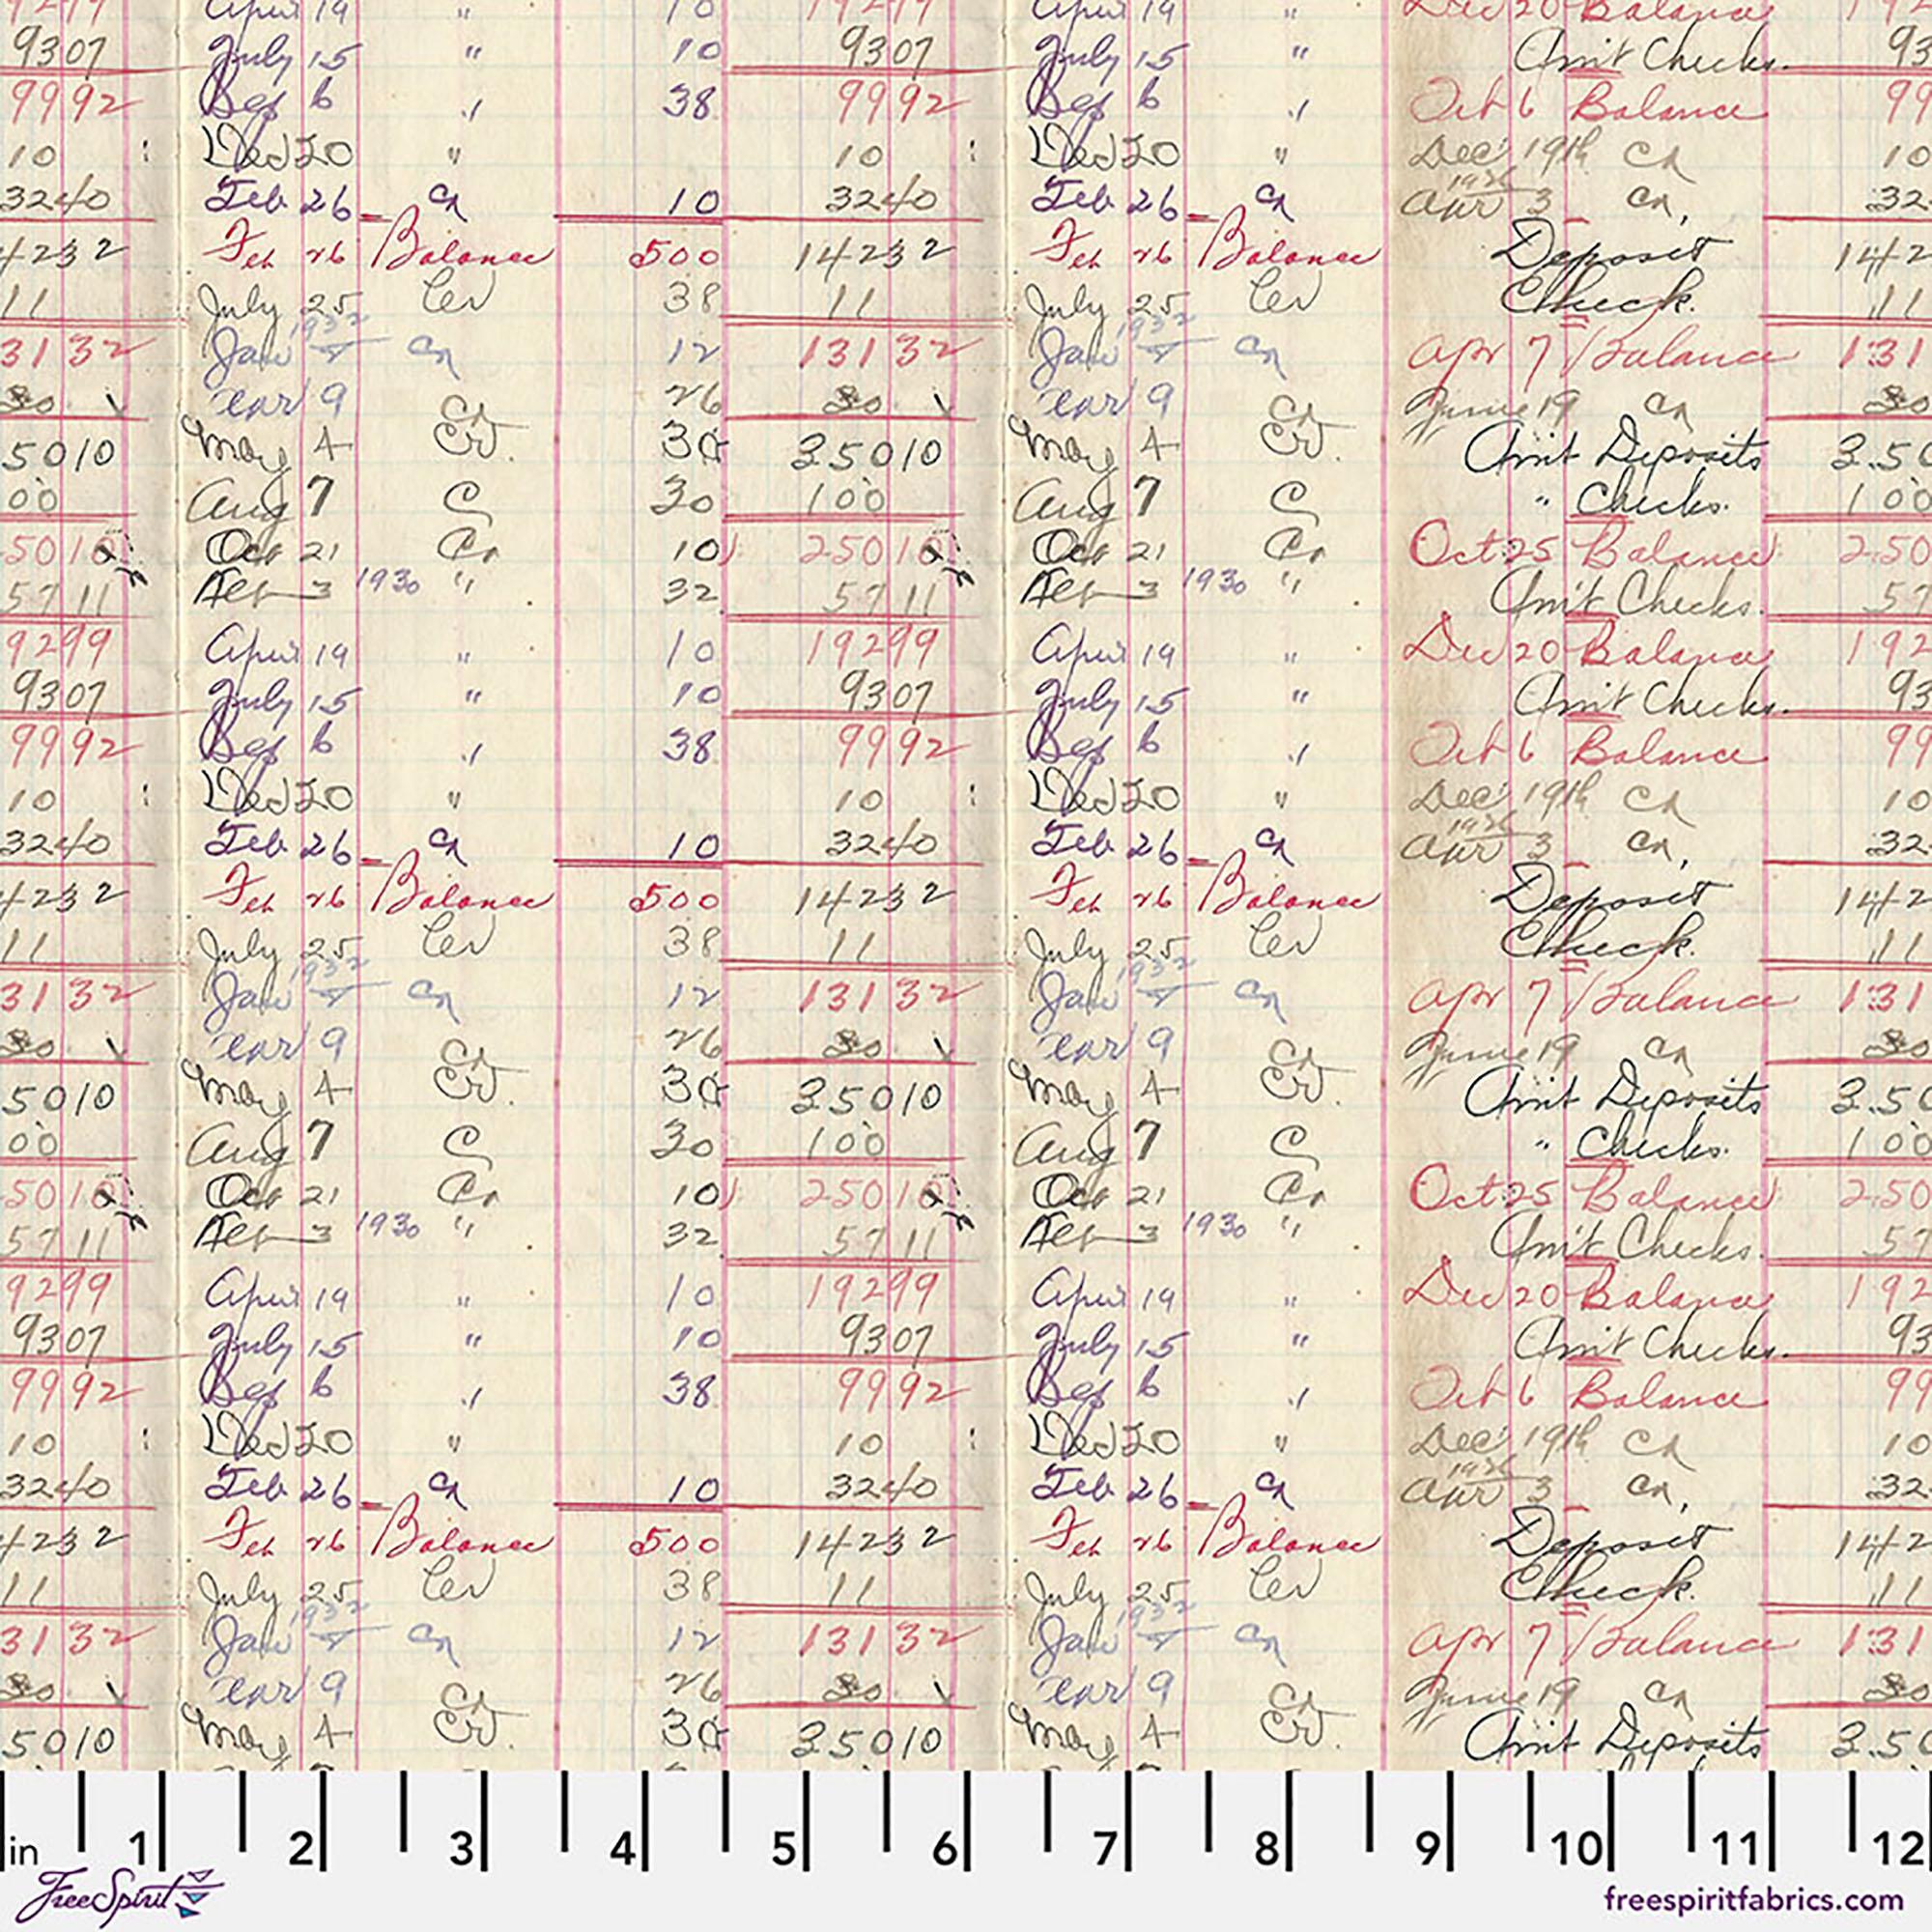 April 19 " 10 19299 April 19 " Dec 20 Balance 192
9307 July 15 " 10 9307 July 15 " Am't Checks. 93
9992 6 " 38 9992 6 " Oct 6 Balance 99
10 Dec 20 " 10 Dec 20 " Dec 19th Cr 10
3240 Feb 26 Cr 10 3240 Feb 26 Cr Apr 3 Cr, 32
4232 Feb 26 Balance 500 14232 Feb 26 Balance Deposit 142
11 July 25 38 11 July 25 Check. 11
3132 Jan 1932 Cr 12 13132 Jan 1932 Cr Apr 7 Balance 131
30 9 26 30 9 June 19 Cr 30
5010 May 4 Cr. 30 35010 May 4 Cr. Am't Deposits 350
00 Aug 7 C 30 100 Aug 7 C " Checks. 100
5010 Oct 21 Cr 10 25010 Oct 21 Cr Oct 25 Balance 250
5711 3 1930 " 32 5711 3 1930 " Am't Checks. 57
9299 April 19 " 10 19299 April 19 " Dec 20 Balance 192
9307 July 15 " 10 9307 July 15 " Am't Checks. 93
9992 6 " 38 9992 6 " Oct 6 Balance 99
10 Dec 20 " 10 Dec 20 " Dec 19th Cr 10
3240 Feb 26 Cr 10 3240 Feb 26 Cr Apr 3 Cr, 32
4232 Feb 26 Balance 500 14232 Feb 26 Balance Deposit 142
11 July 25 38 11 July 25 Check. 11
3132 Jan 1932 Cr 12 13132 Jan 1932 Cr Apr 7 Balance 131
30 9 26 30 9 June 19 Cr 30
5010 May 4 Cr. 30 35010 May 4 Cr. Am't Deposits 350
00 Aug 7 C 30 100 Aug 7 C " Checks. 100
5010 Oct 21 Cr 10 25010 Oct 21 Cr Oct 25 Balance 250
5711 3 1930 " 32 5711 3 1930 " Am't Checks. 57
9299 April 19 " 10 19299 April 19 " Dec 20 Balance 192
9307 July 15 " 10 9307 July 15 " Am't Checks. 93
9992 6 " 38 9992 6 " Oct 6 Balance 99
10 Dec 20 " 10 Dec 20 " Dec 19th Cr 10
3240 Feb 26 Cr 10 3240 Feb 26 Cr Apr 3 Cr, 32
4232 Feb 26 Balance 500 14232 Feb 26 Balance Deposit 142
11 July 25 38 11 July 25 Check. 11
3132 Jan 1932 Cr 12 13132 Jan 1932 Cr Apr 7 Balance 131
30 9 26 30 9 June 19 Cr 30
5010 May 4 Cr. 30 35010 May 4 Cr. Am't Deposits 350
in 1 2 3 4 5 6 7 8 9 10 11 12
FreeSpirit freespiritfabrics.com